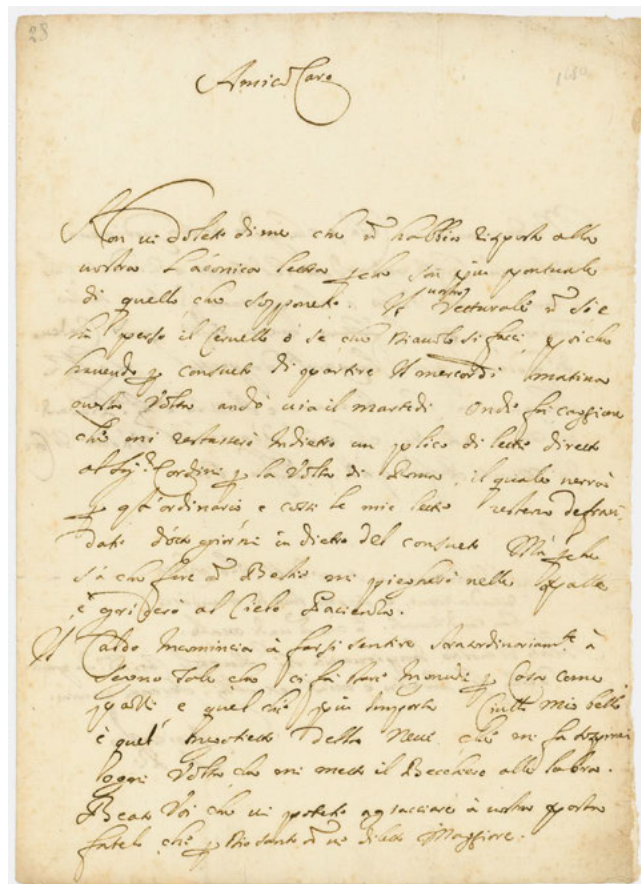 28
1680
Amico Caro
Non vi dolete di me che non habbia risposto alla
vostra Laconica lettera perche son più pontuale
di quello che supponete. Il vostro Vetturale non si è
perso il Cervello ò se che Diavolo si facci, poiche
havendo per consueto di partire Il mercordi matina
questa Volta andò via il martedi. Onde fù caggione
che mi restassero Indietro un plico di lettere dirette
al Sig.r Cordini per la Volta di Roma, il quale verrà
per q.to ordinario e cossi le mie lettere restano defrau
date d'otto giorni in dietro del consueto Mà perche
sà che fare con Bestie mi piegherò nelle spalle
e griderò al Cielo Pacienza.
Il Caldo Incomincia à farsi sentire straordinariam.te à
segno tale che ci fà stare Ignudi per Casa come
pazzi e quel che più Importa Ciutti mio bello
è quel della Neve che mi fà
ogni Volta che mi metto il Bicchiere alle labra.
Beato Voi che vi potete agiacciare à vostra posta
fatelo che per Dio santo non vi è diletto Maggiore.